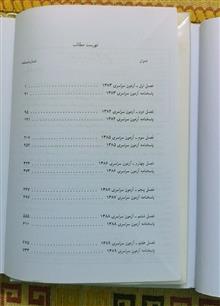 فهرست مطالب
عنوان
فصل اول ـ آزمون سراسری ۱۳۸۳
پاسخنامه آزمون سراسری ۱۳۸۳
فصل دوم ـ آزمون سراسری ۱۳۸۴ ۹۵
پاسخنامه آزمون سراسری ۱۳۸۴
فصل سوم ـ آزمون سراسری ۱۳۸۵
پاسخنامه آزمون سراسری ۱۳۸۵
فصل چهارم ـ آزمون سراسری ۱۳۸۶
پاسخنامه آزمون سراسری ۱۳۸۶
فصل پنجم ـ آزمون سراسری ۱۳۸۷
پاسخنامه آزمون سراسری ۱۳۸۷
فصل ششم ـ آزمون سراسری ۱۳۸۸
پاسخنامه آزمون سراسری ۱۳۸۸
فصل هفتم ـ آزمون سراسری ۱۳۸۹
پاسخنامه آزمون سراسری ۱۳۸۹